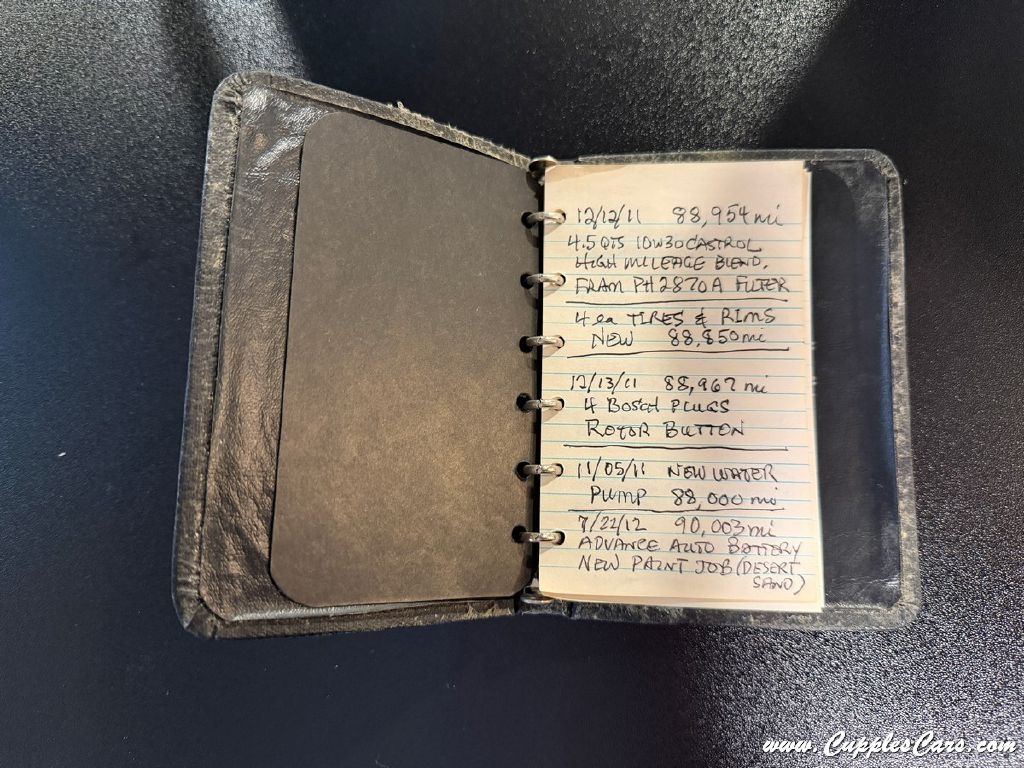 12/12/11 88,954 mi
4.5 QTS 10W30 CASTROL
HIGH MILEAGE BLEND.
FRAM PH2870A FILTER
4 ea TIRES & RIMS
NEW 88,850 mi
12/13/11 88,967 mi
4 BOSCH PLUGS
ROTOR BUTTON
11/05/11 NEW WATER
PUMP 88,000 mi
7/22/12 90,003 mi
ADVANCE AUTO BATTERY
NEW PAINT JOB (DESERT
SAND)
www.CupplesCars.com